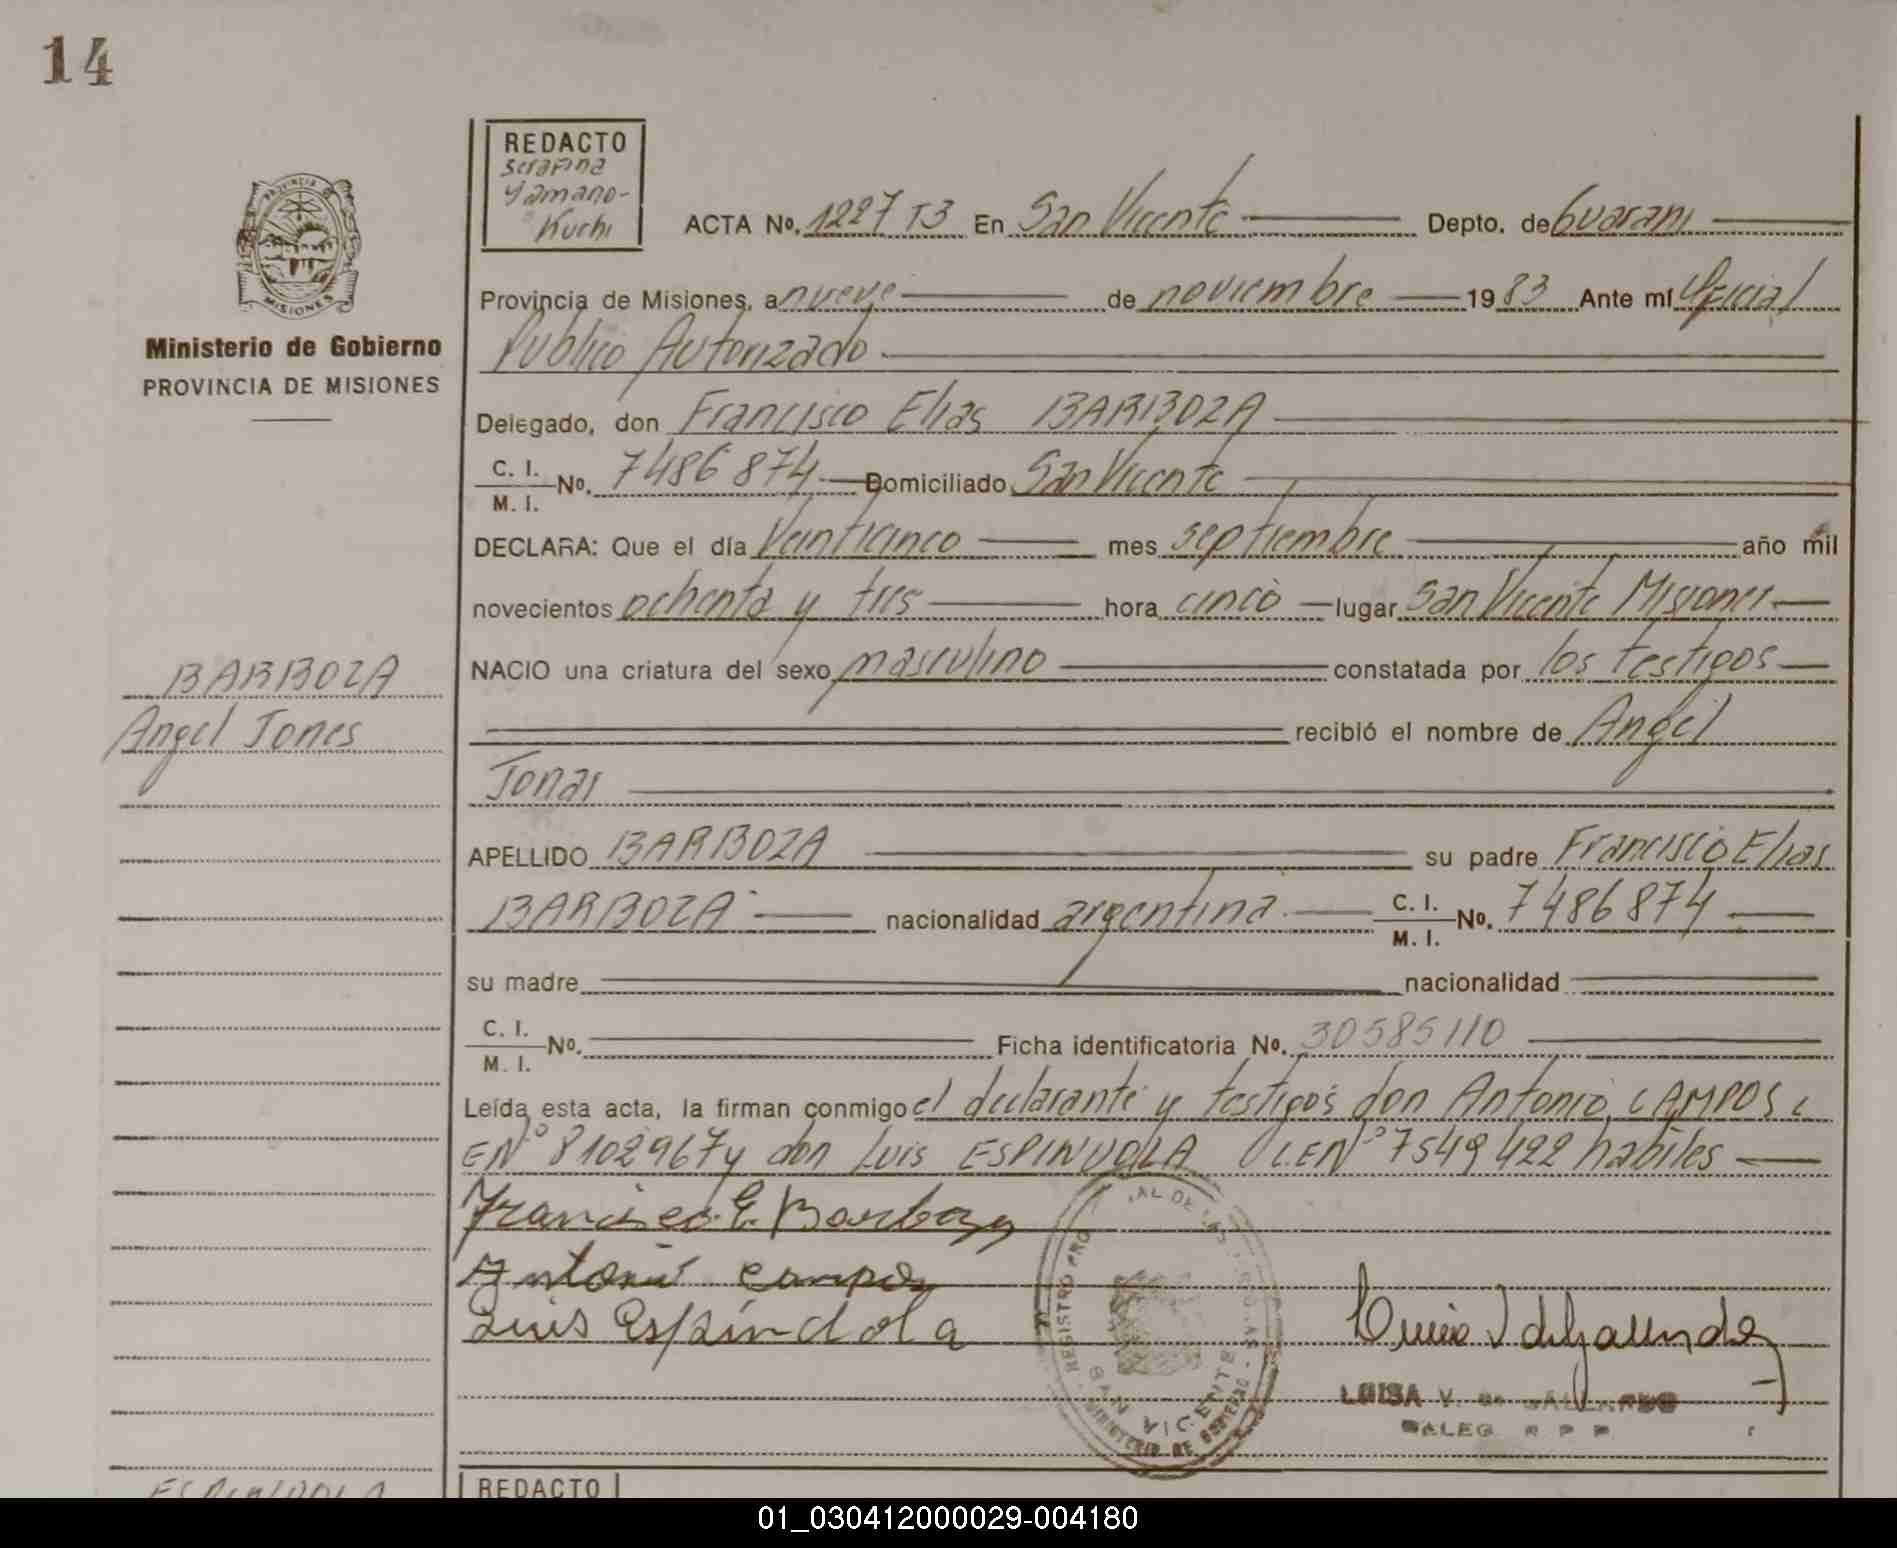 14
REDACTO
Serafina
Yamano-
Kuchi
PROVINCIA DE
MISIONES
Ministerio de Gobierno
PROVINCIA DE MISIONES
ACTA No. 1227 T3 En San Vicente Depto. de Guarani
Provincia de Misiones, a nueve de noviembre 1983 Ante mí Oficial
Publico Autorizado
Delegado, don Francisco Elias BARBOZA
C. I.
M. I. No. 7486874 Domiciliado San Vicente
DECLARA: Que el día Veinticinco mes septiembre año mil
novecientos ochenta y tres hora cinco lugar San Vicente Misiones
BARBOZA
Angel Jones
NACIO una criatura del sexo masculino constatada por los testigos
recibió el nombre de Angel
Jonas
APELLIDO BARBOZA su padre Francisco Elias
BARBOZA nacionalidad argentina C. I.
M. I. No. 7486874
su madre nacionalidad
C. I.
M. I. No. Ficha identificatoria No. 30585110
Leída esta acta, la firman conmigo el declarante y testigos don Antonio CAMPOS L
EN° 8102967 y don Luis ESPINDOLA L.EN° 7549422 habiles
Francisco E. Barboza
Antonio Campos
Luis Espíndola
REGISTRO PRO AL DE LAS
SAN VICENTE
MINISTERIO DE GOBIERNO
LUISA V. de GALLARDO
REDACTO
ESPINDOLA
01_030412000029-004180